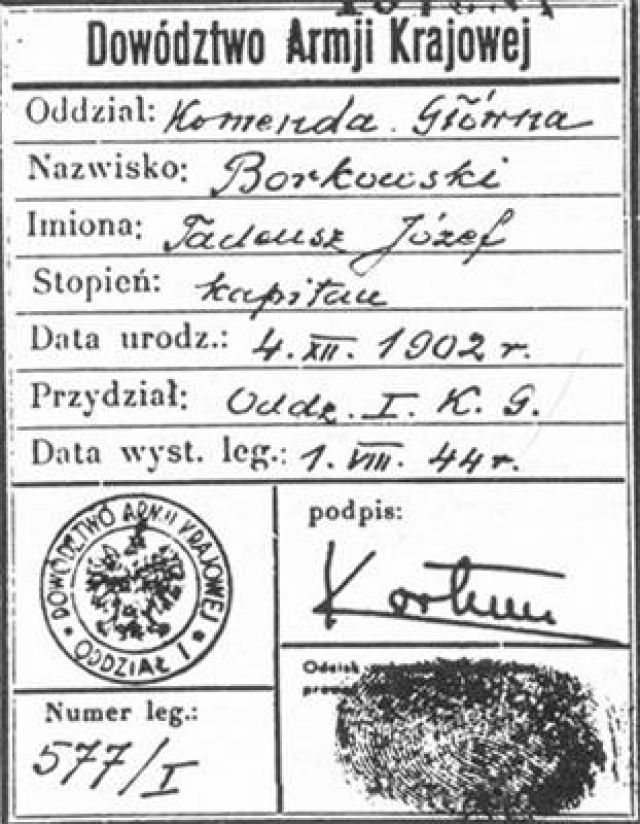 Dowództwo Armji Krajowej
Oddział: Komenda Główna
Nazwisko: Borkowski
Imiona: Tadeusz Józef
Stopień: kapitan
Data urodz.: 4. XII. 1902 r.
Przydział: Oddz. I. K. G.
Data wyst. leg.: 1. VIII. 44 r.
DOWÓDZTWO ARMII KRAJOWEJ
ODDZIAŁ I
podpis:
Odcisk
Numer leg.:
577/I